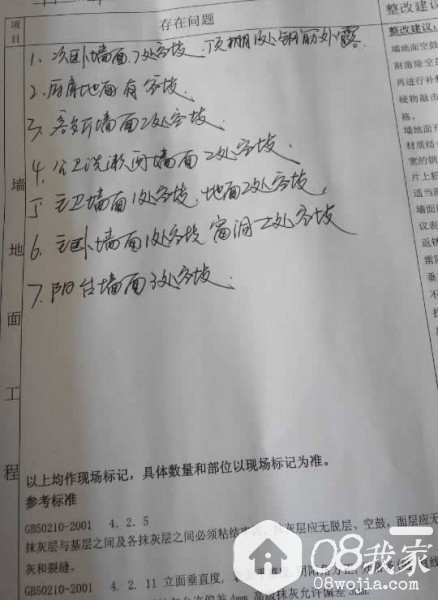 项目
存在问题
整改建议
整改建议:
1、次卧墙面7处空坡、顶棚1处钢筋外露.
2、厨房地面有空坡.
3、客厅墙面2处空坡.
4、公卫洗漱间墙面2处空坡.
5、主卫墙面1处空坡,地面2处空坡,
6、主卧墙面1处空坡 窗洞2处空坡
7、阳台墙面3处空坡.
墙地面工程
墙地面空鼓
再进行补
硬物敲击
格。
墙地面
材质结
宽的钢
片上
适当
墙面
仪表
以上均作现场标记,具体数量和部位以现场标记为准。
参考标准
GB50210-2001 4.2.5
抹灰层与基层之间及各抹灰层之间必须粘结牢固,抹灰层应无脱层、空鼓,面层应无
灰和裂缝。
GB50210-2001 4.2.11 立面垂直度,
08我家
08wojia.com